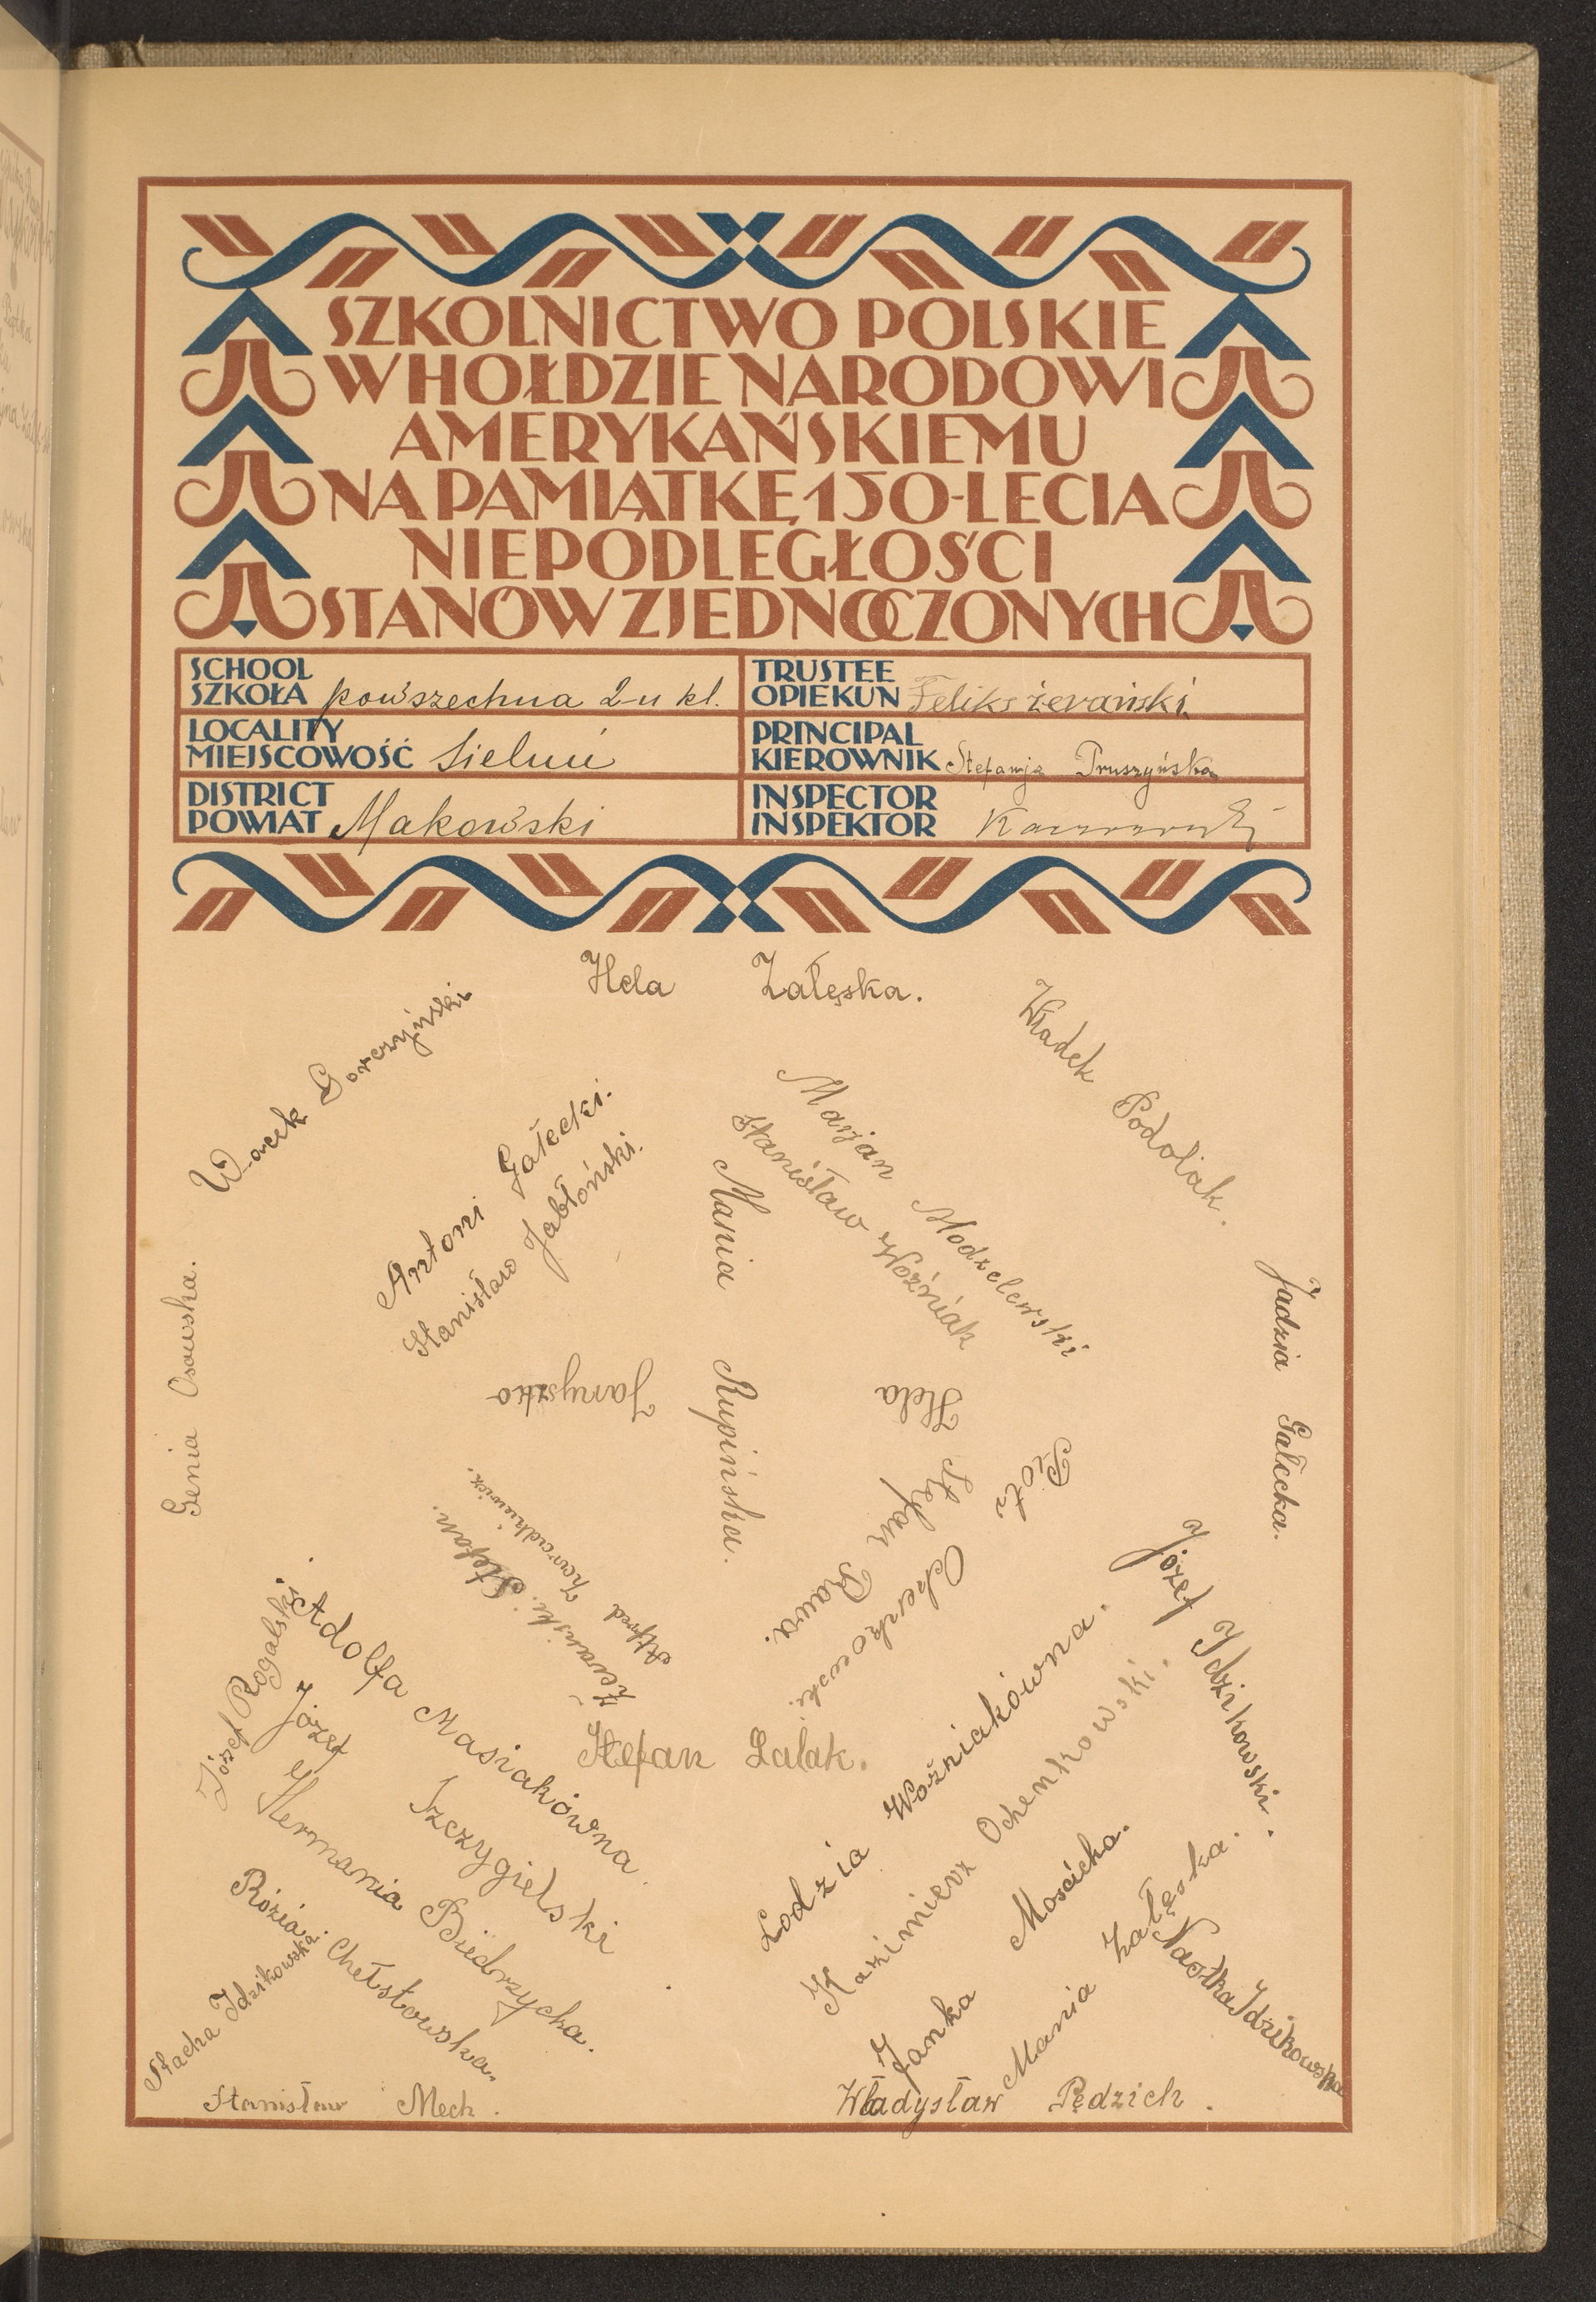 SZKOLNICTWO POLSKIE
W HOŁDZIE NARODOWI
AMERYKAŃSKIEMU
NA PAMIĄTKĘ 150-LECIA
NIEPODLEGŁOŚCI
STANÓW ZJEDNOCZONYCH
SCHOOL
SZKOŁA powszechna 2-u kl.
TRUSTEE
OPIEKUN Feliks żerański
LOCALITY
MIEJSCOWOŚĆ Sieluń
PRINCIPAL
KIEROWNIK Stefanja Pruszyńska
DISTRICT
POWIAT Makowski
INSPECTOR
INSPEKTOR
Hela Załęska.
Wacek Gorczyński
Władek Podolak.
Antoni Gałecki.
Stanisław Jabłoński.
Marjan Modzelewski
Stanisław Woźniak
Mania Rupińska.
Genia Osowska.
Jadzia Gałecka.
Janyszko Hela
Piotr Ochenkowski.
Stefan Rawa.
Żerański Stefan.
Alfred Konradkiewicz.
Józef Idzikowski.
Józef Rogalski.
Adolfa Masiakówna.
Stefan Lalak.
Józef Szczygielski
Hermania Biedrzycka.
Lodzia Woźniakówna.
Kazimierz Ochenkowski.
Janka Mościcka.
Mania Załęska.
Nastka Idzikowska
Rózia Chełstowska.
Stacha Idzikowska.
Stanisław Mech.
Władysław Pędzich.